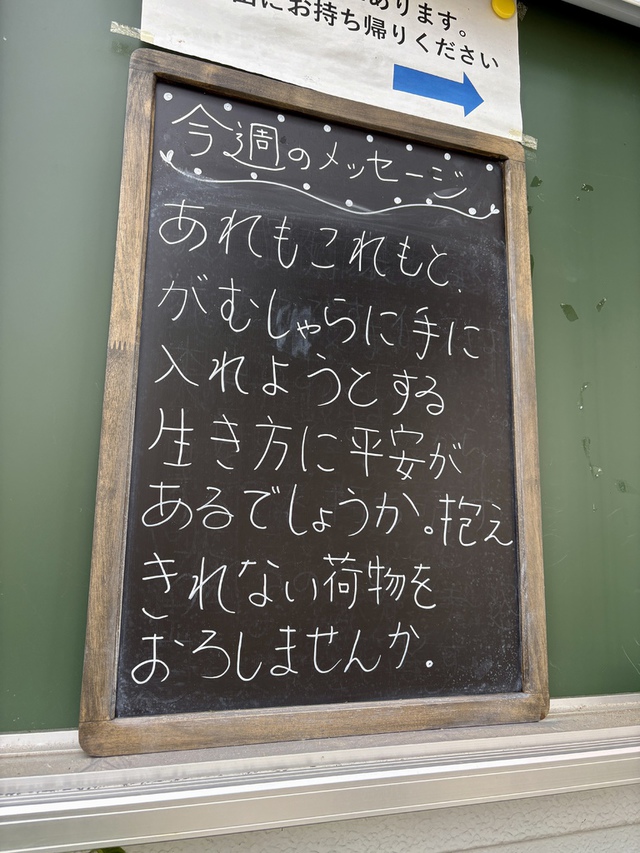 あります。
にお持ち帰りください
今週のメッセージ
あれもこれもと、
がむしゃらに手に
入れようとする
生き方に平安が
あるでしょうか。抱え
きれない荷物を
おろしませんか。